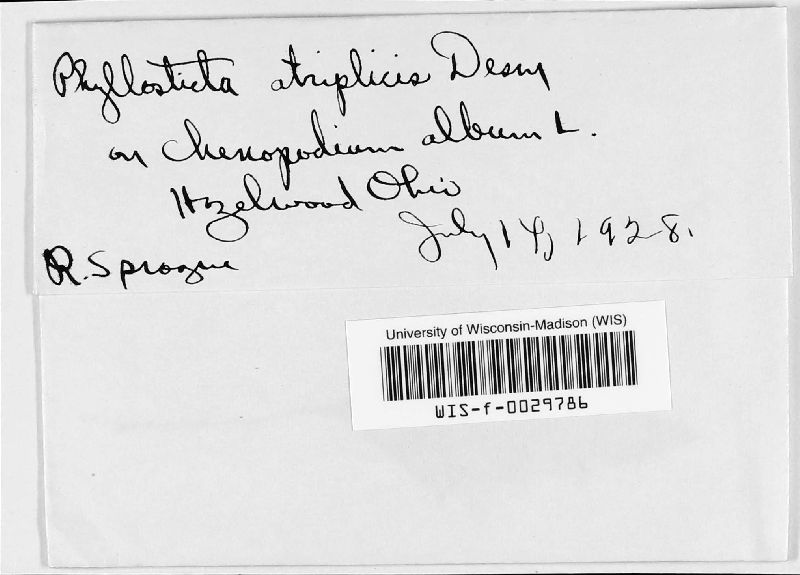 Phyllosticta atriplicis Desm
on Chenopodium album L.
Hazelwood Ohio
July 14, 1928.
R. Sprague
University of Wisconsin-Madison (WIS)
WIS-f-0029786